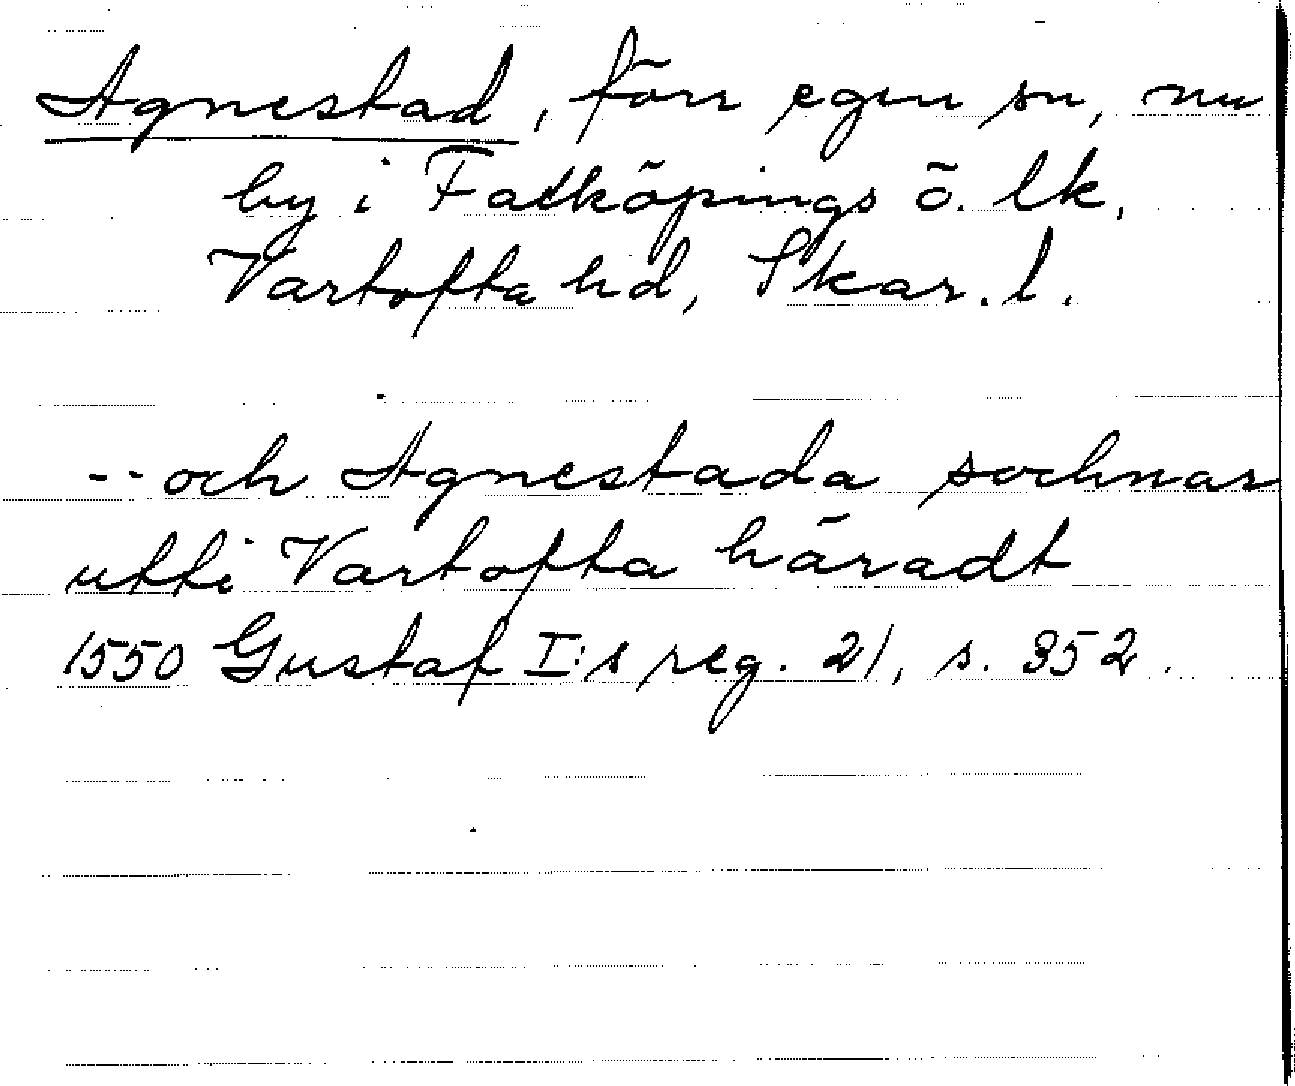 Agnestad, förr egen sn, nu
by i Falköpings ö. lk,
Vartofta hd, Skar. l.
-- och Agnestada sochnar
utti Vartofta häradt
1550 Gustaf I:s reg. 21, s. 352.